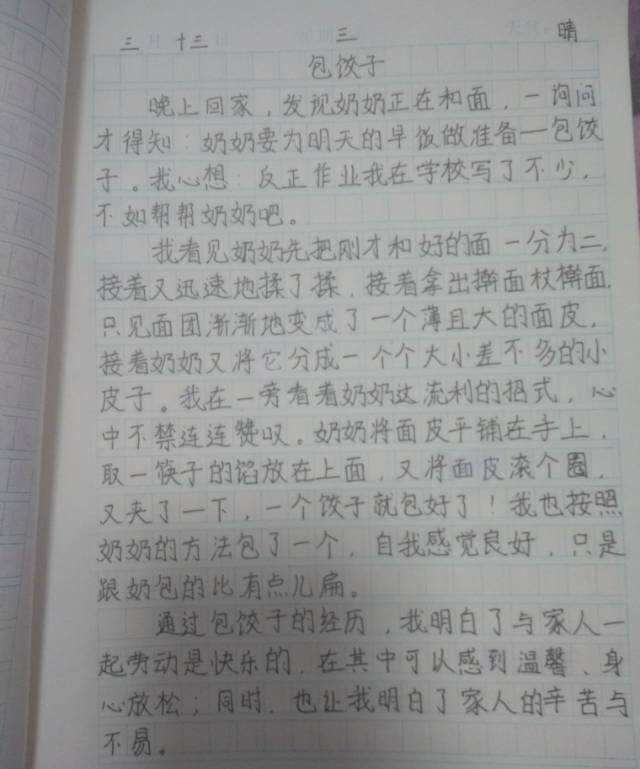 三月 十三日 三 晴
包饺子
晚上回家，发现奶奶正在和面，一询问
才得知：奶奶要为明天的早饭做准备一包饺
子。我心想：反正作业我在学校写了不少，
不如帮帮奶奶吧。
我看见奶奶先把刚才和好的面一分为二，
接着又迅速地揉了揉，接着拿出擀面杖擀面，
只见面团渐渐地变成了一个薄且大的面皮，
接着奶奶又将它分成一个个大小差不多的小
皮子。我在一旁看着奶奶这流利的招式，心
中不禁连连赞叹。奶奶将面皮平铺在手上，
取一筷子的馅放在上面，又将面皮滚个圈，
又夹了一下，一个饺子就包好了！我也按照
奶奶的方法包了一个，自我感觉良好，只是
跟奶包的比有点儿扁。
通过包饺子的经历，我明白了与家人一
起劳动是快乐的，在其中可以感到温馨、身
心放松；同时，也让我明白了家人的辛苦与
不易。